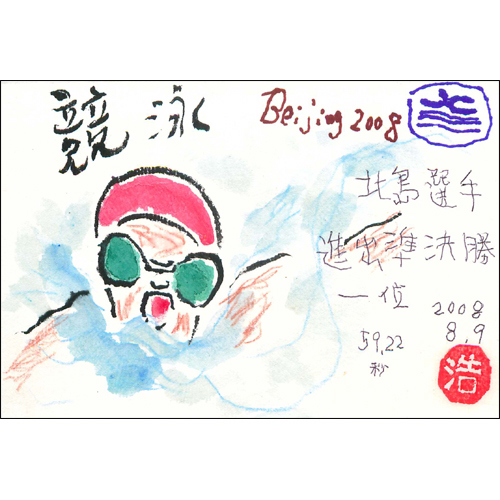 競泳
Beijing 2008
北島選手
進出準決勝
一位
59,22
秒
2008
8.9
浩